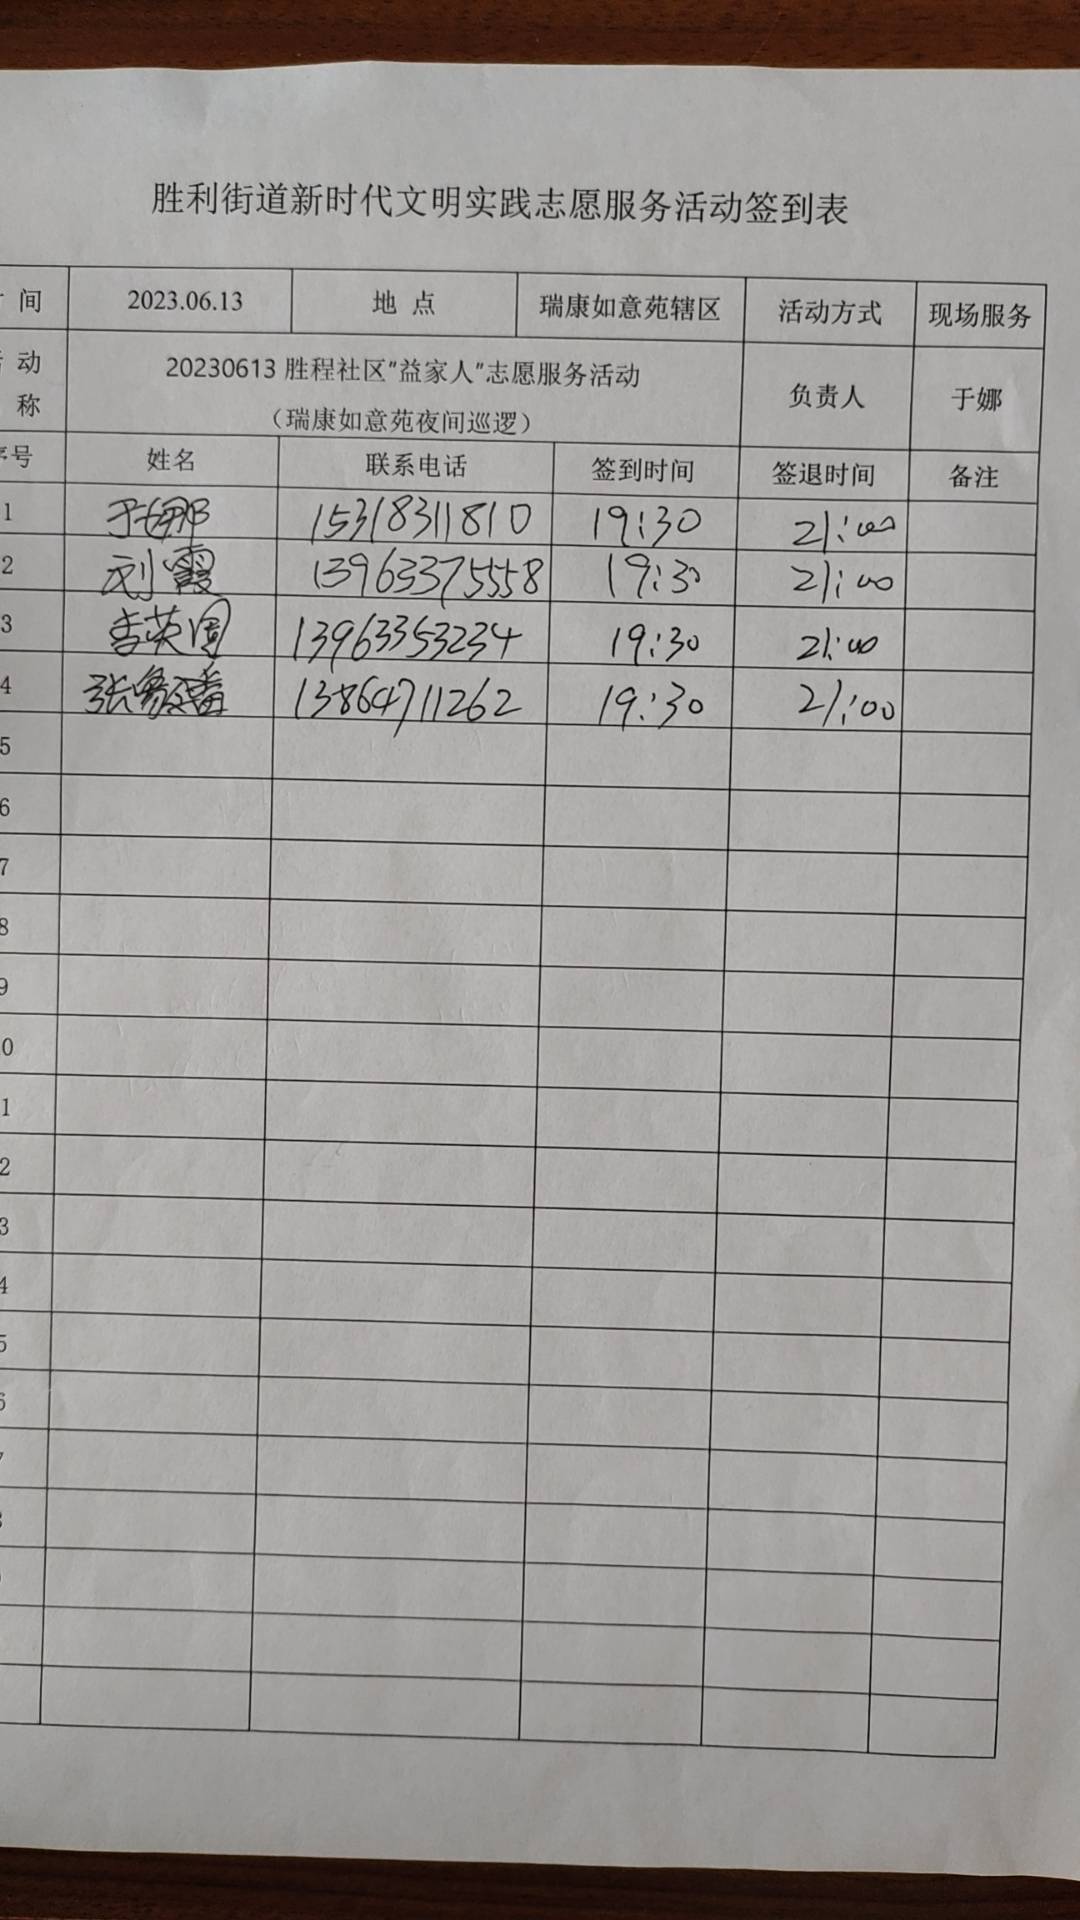 胜利街道新时代文明实践志愿服务活动签到表
间 2023.06.13 地 点 瑞康如意苑辖区 活动方式 现场服务
动 称 20230613 胜程社区"益家人"志愿服务活动
（瑞康如意苑夜间巡逻） 负责人 于娜
序号 姓名 联系电话 签到时间 签退时间 备注
1 于娜 15318311810 19:30 21:00
2 刘霞 13963375558 19:30 21:00
3 李英国 13963353234 19:30 21:00
4 张 13864711262 19:30 21:00
5
6
7
8
9
0
1
2
3
4
5
6
7